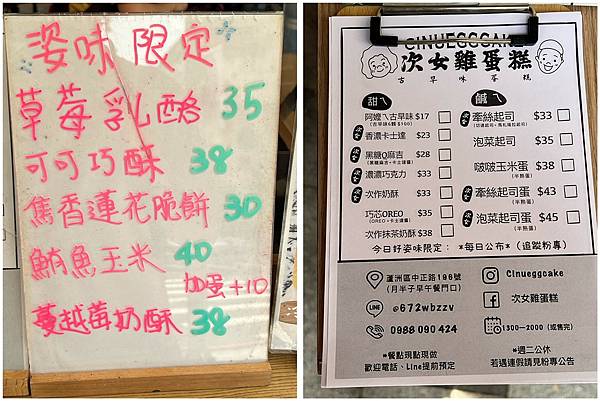 姿味限定
草莓乳酪 35
可可巧酥 38
焦香蓮花脆餅 30
鮪魚玉米 40
加蛋+10
蔓越莓奶酥 38
CINUEGGCAKE
次女雞蛋糕
古早味蛋糕
甜ㄟ
阿嬤ㄟ古早味 $17
香濃卡士達 $23
次女
黑糖Q麻吉 $28
(黑糖麻吉+卡士達醬)
次女
濃濃巧克力 $33
次作奶酥 $33
巧芯OREO $35
(OREO+卡士達醬)
次作抹茶奶酥 $38
鹹ㄟ
次女
牽絲起司 $33
泡菜起司 $35
啵啵玉米蛋 $38
(半熟蛋)
次女
牽絲起司蛋 $43
(半熟蛋)
次女
泡菜起司蛋 $45
(半熟蛋)
今日好姿味限定: *每日公布*(追蹤粉專)
蘆洲區中正路196號
(月半子早午餐門口)
LINE @672wbzzv
0988 090 424
Cinueggcake
次女雞蛋糕
1300—2000 (或售完)
*餐點現點現做
歡迎電話、Line提前預定
*週二公休
若遇連假請見粉專公告